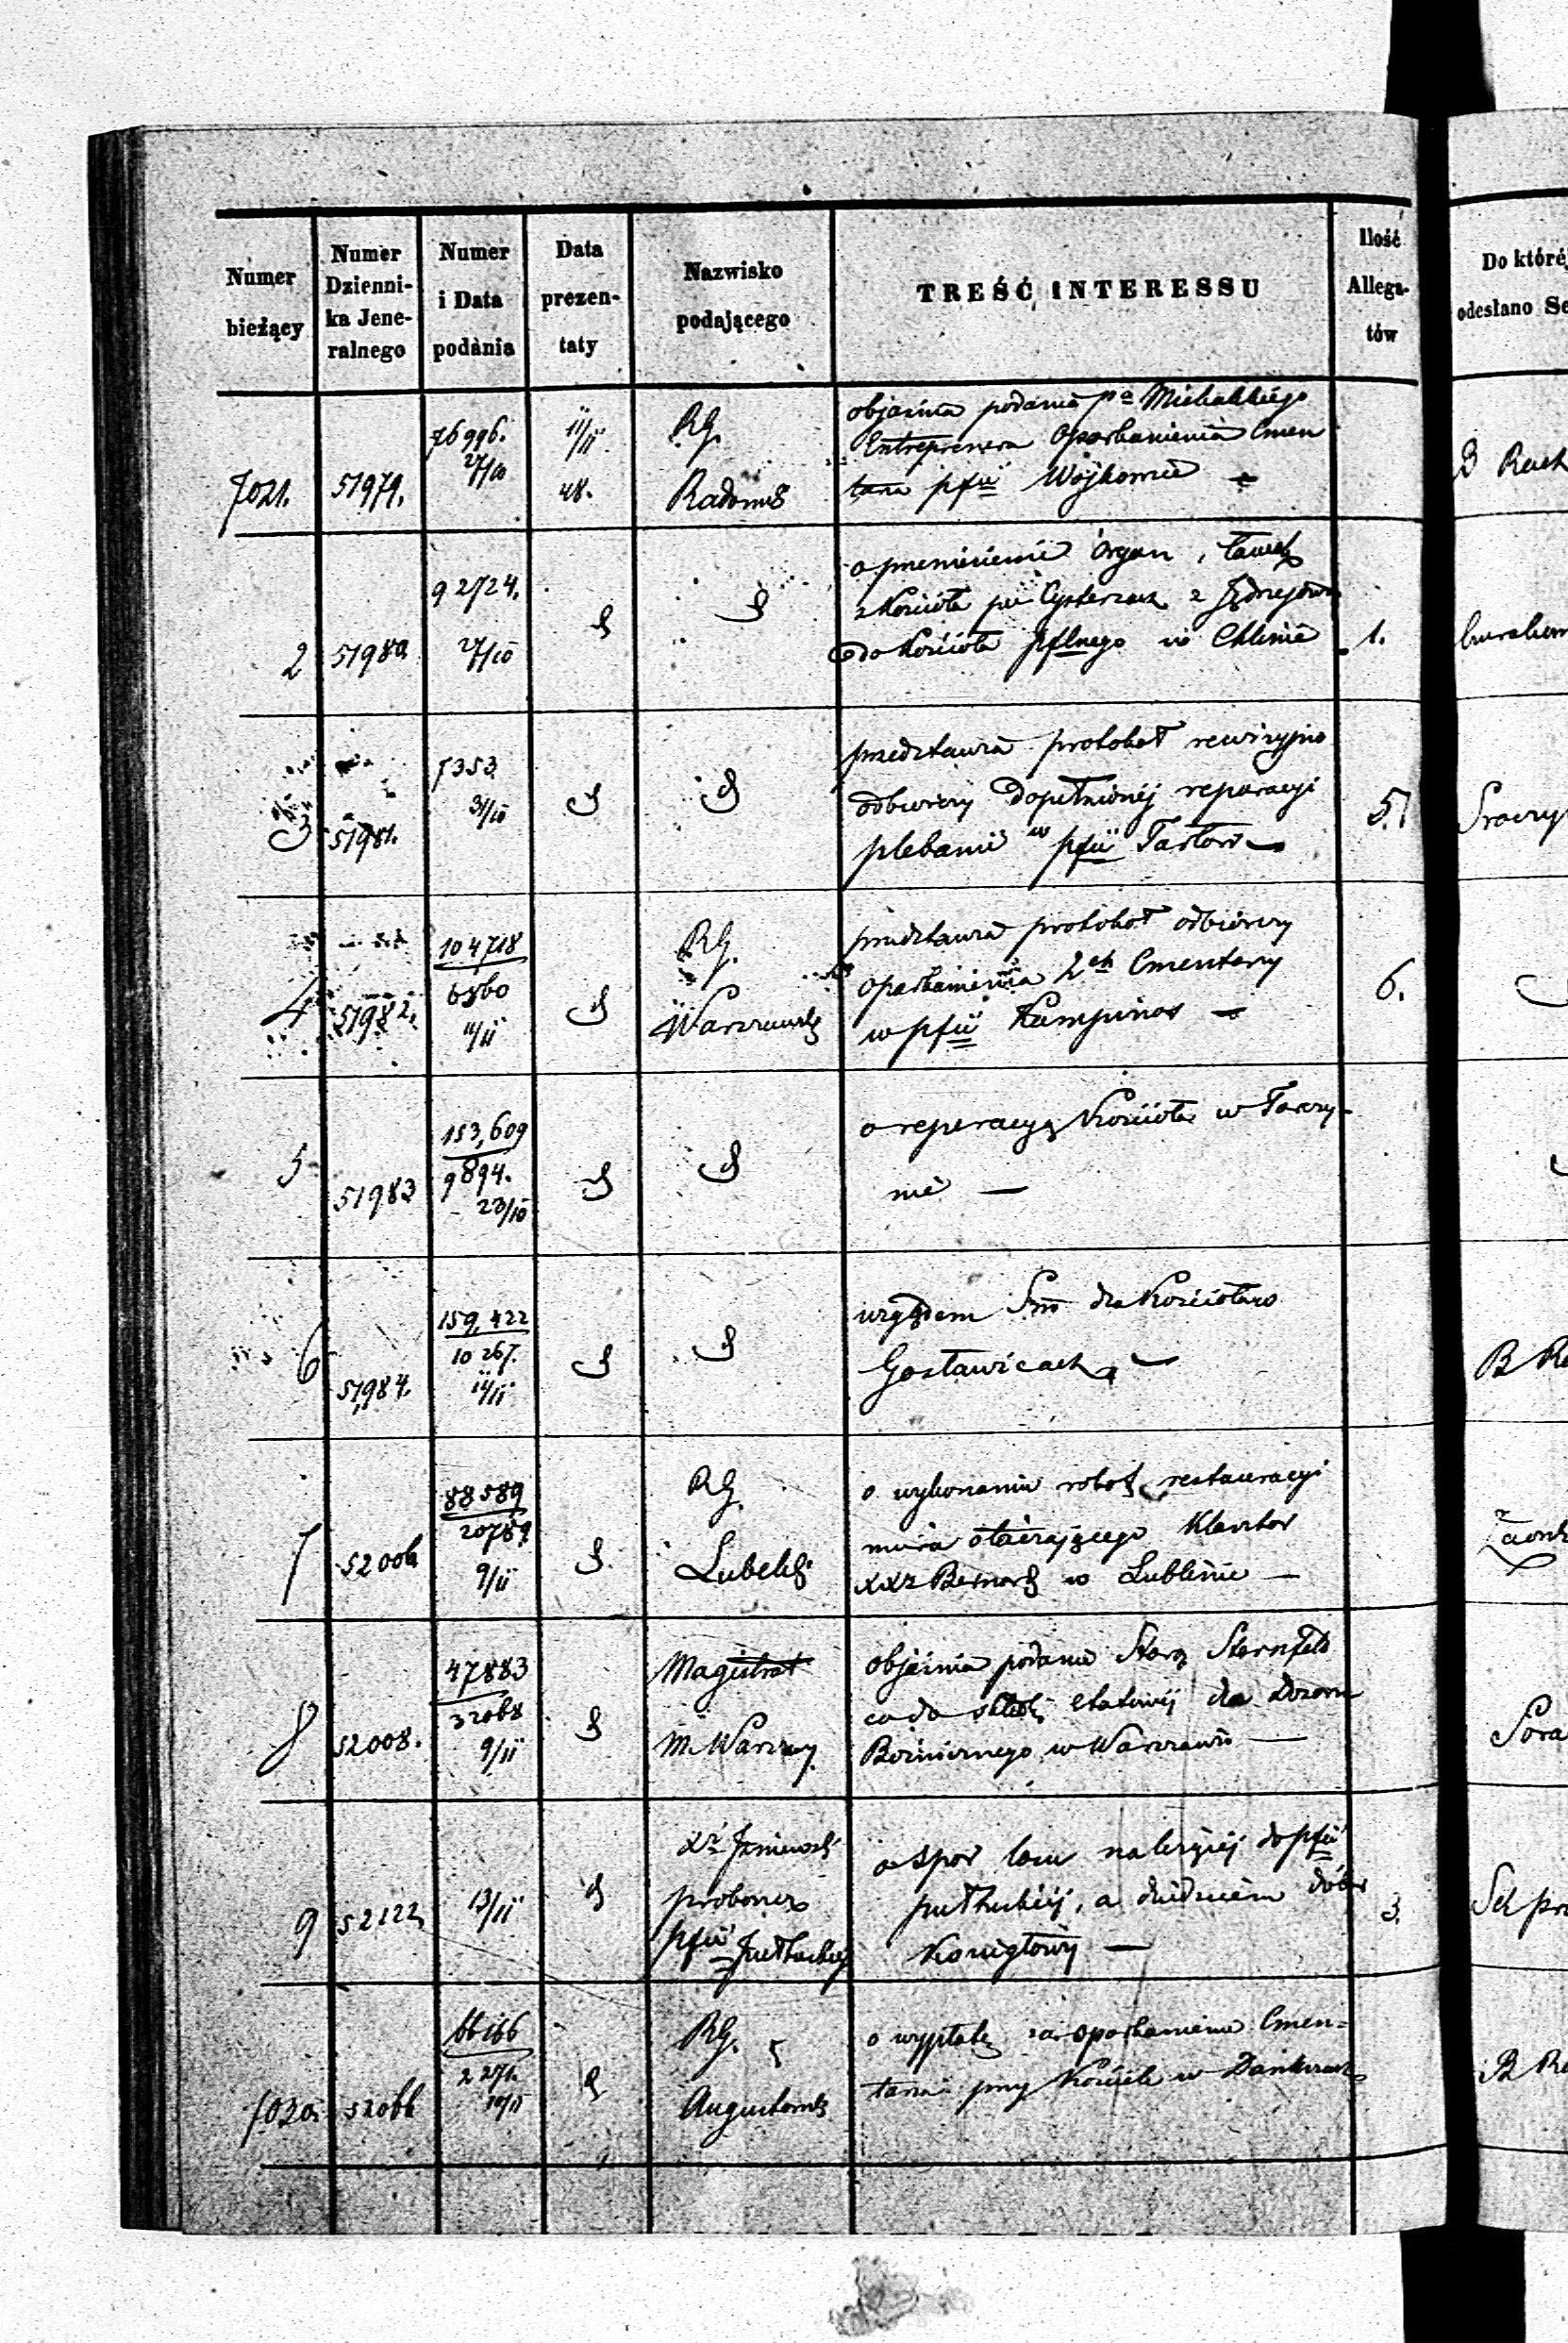 Numer bieżący
Numer Dzienni-ka Jene-ralnego
Numer i Data podania
Data prezen-taty
Nazwisko podającego
TREŚĆ INTERESSU
Ilość Allega-tów
Do któré
odesłano Se
7021. 51979. 76996. 27/10 11/11 48. RG. Radoms
objaśnia podania pa Michalskiego
Entreprenera oparkanienia Cmen
tarza pfii Wojkowice —
B Rach
2 51980 92724. 27/10
o przeniesienie organ, ławek
z Kościoła po Cystersach z Jędrzejowa
do Kościoła pflnego w Chlinie
1.
3 51981. 7353 31/10
przedstawia protokół rewizyjno
odbiorczy dopełnionéj reparacyi
plebanii w pfii Tarłów —
5.
4 51982. 104718 6860 11/11 RG. Warszawsk
przedstawia protokół odbiorczy
oparkanienia 2ch Cmentarzy
w pfii Kampinos —
6.
5 51983 153,609 9894. 23/10
o reperacyą Kościoła w Tarczy-
nie —
6 51984. 159,422 10267. 11/11
względem dla Kościoła w
Gosławicach —
7 52006 88589 20789 9/11 RG. Lubelsk
o wykonaniu robót restauracyi
muru otaczającego Klasztor
XXz Bernard w Lublinie —
8 52008. 47883 32068 9/11 Magistrat m. Warszawy
objaśnia podanie Sternfeld
co do składk etatowéj dla Dozoru
Bożniczego w Warszawie —
9 52122 13/11 Xz proboszcz pfii Pułtuskiej
o spór łanu należącéj do pfii
pułtuskiéj, a dziedzicem dóbr
—
3.
7030. 52066 66166 2271. 10/11 RG. Augustows
o wypłatę za oparkanienie Cmen=
tarza przy Kościele w